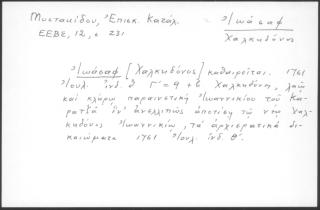 Μυστακίδου, Ἐπισκ. Κατάλ.
ΕΕΒΣ, 12, σ 231
Ἰωάσαφ
Χαλκηδόνος
Ἰωάσαφ [Χαλκηδόνος] καθαιρεῖται. 1761
Ἰουλ. ἰνδ. θ Γ΄ = 9 + 6 Χαλκηδόνι, λαῷ
καὶ κλήρῳ παραινετικὴ Ἰωαννικίου τοῦ Κα-
ρατζᾶ ἵν' ἀνελλιπῶς ἀποτίσῃ τῷ νέῳ Χαλ-
κηδόνος Ἰωαννικίῳ, τὰ ἀρχιερατικὰ δι-
καιώματα 1761 Ἰουλ. ἰνδ. θ΄.